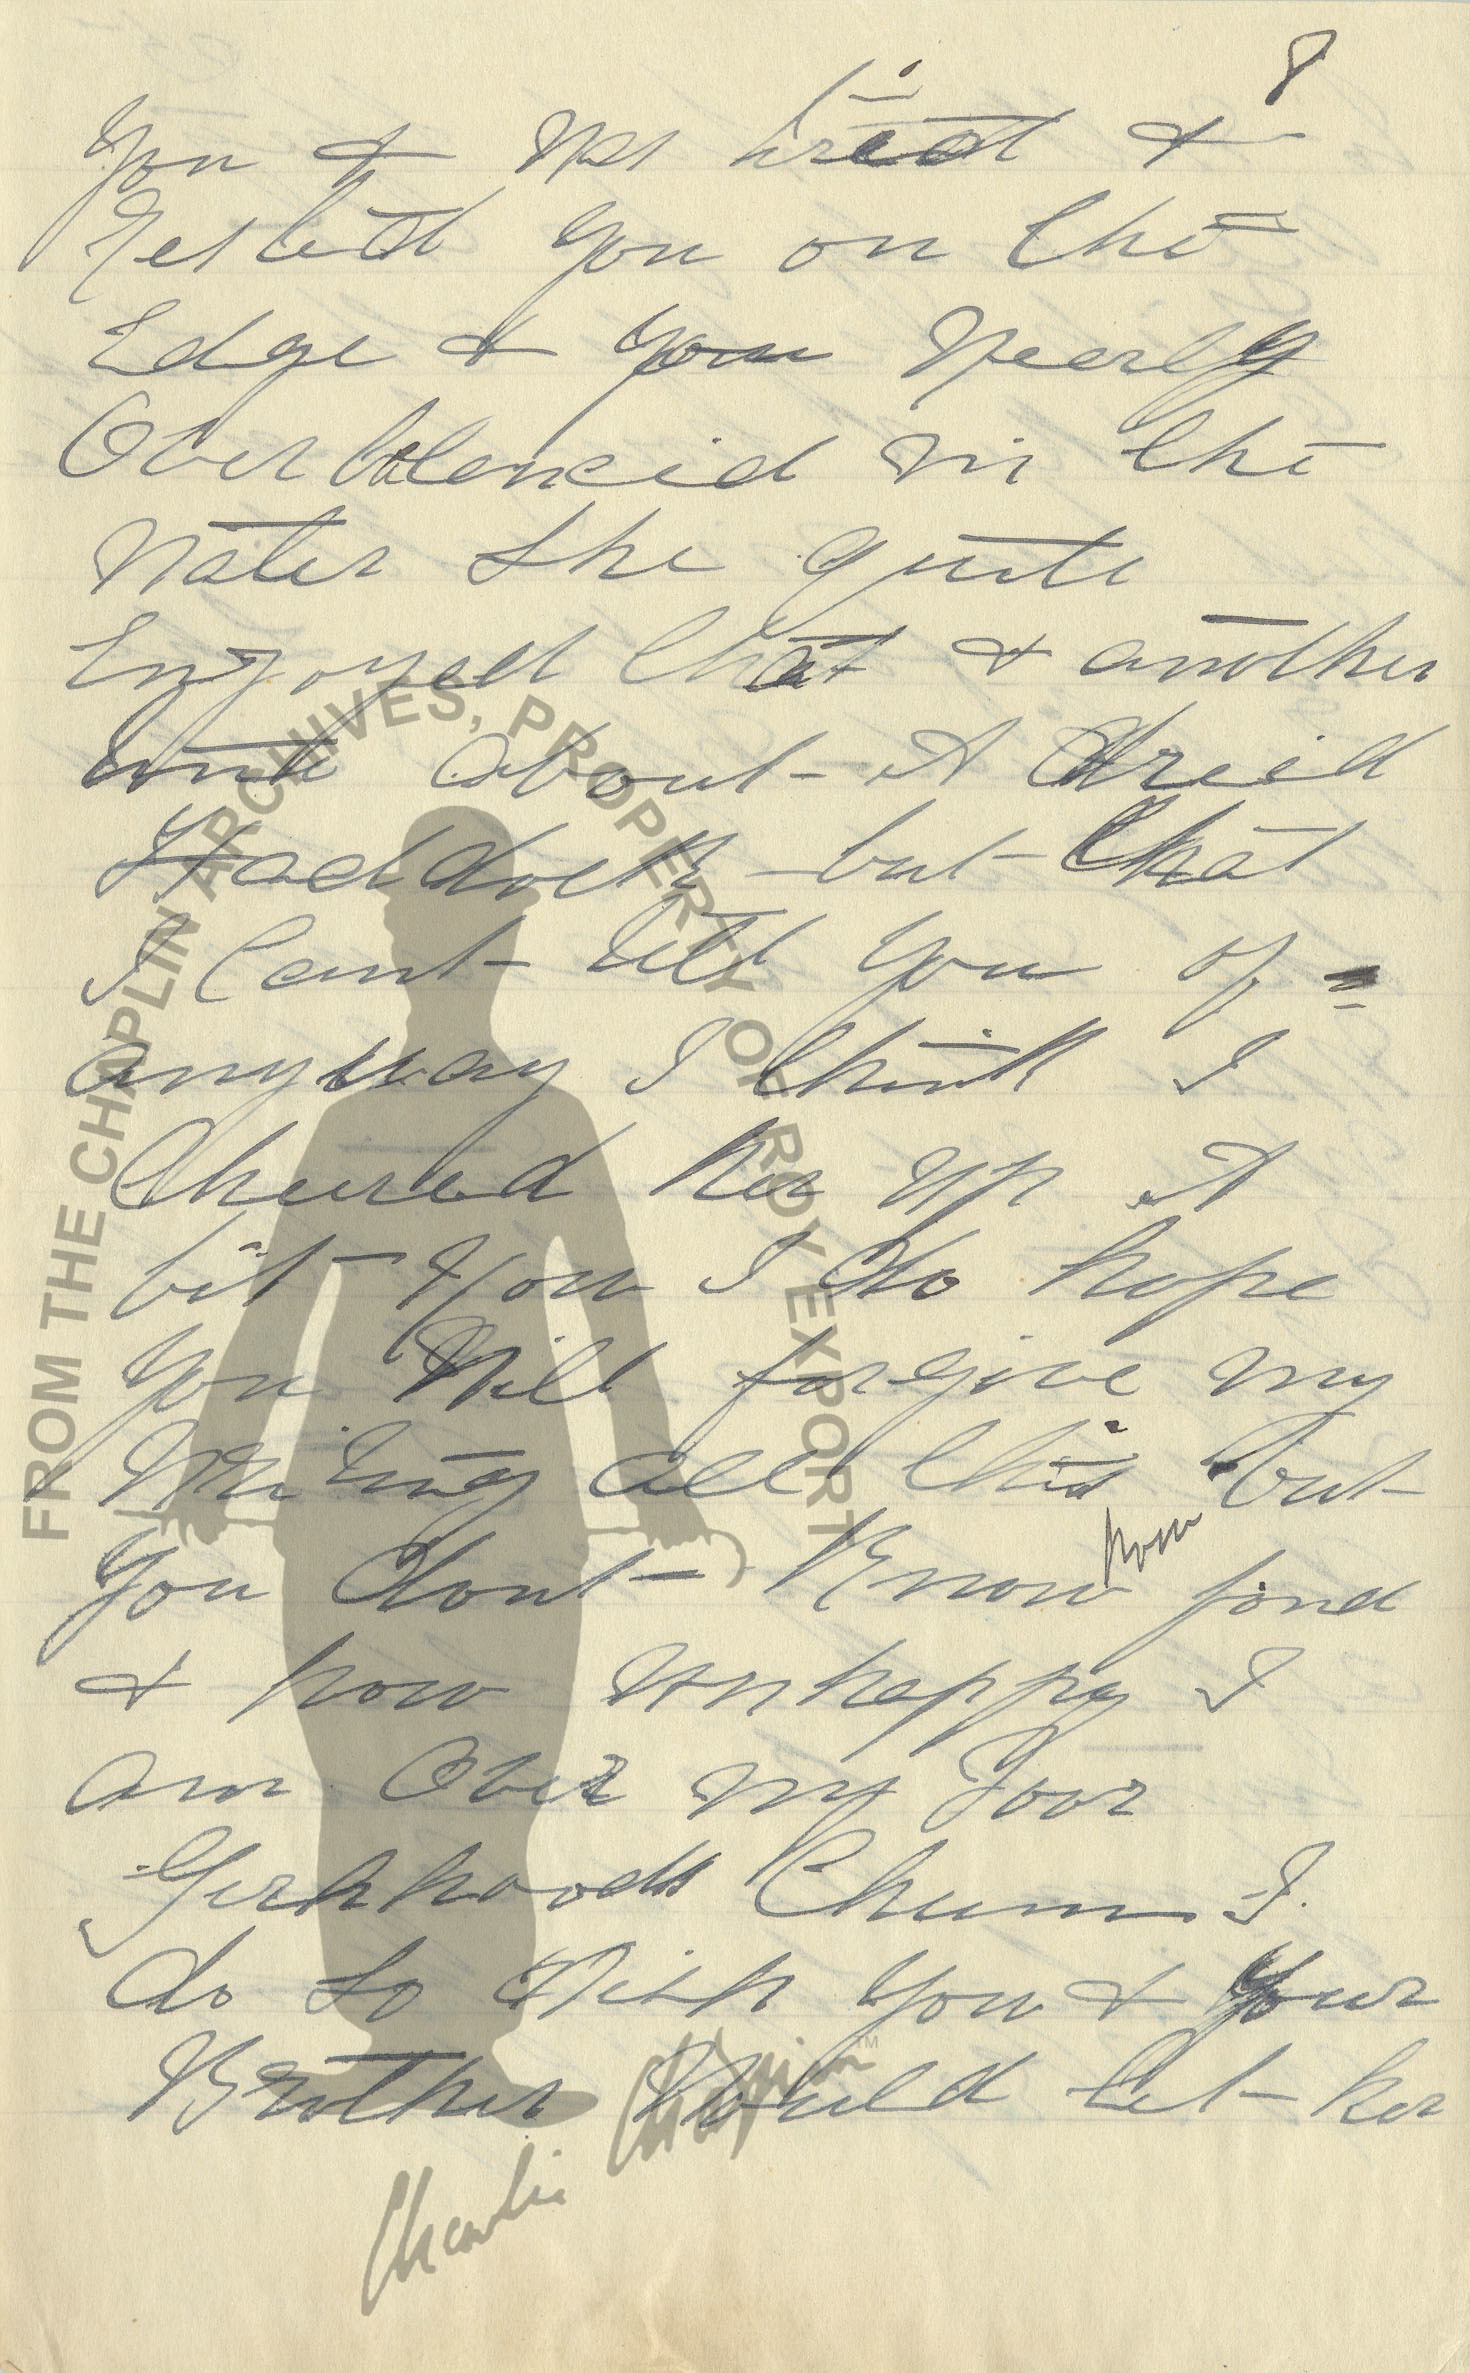 8
You & Was tried &
Rested You on the
Edge & You Neerly
Overbalencid in the
Water She quite
Enjoyed that & another
time about - A dreid
Haddock - but - that
I Cant - tell You of
anyway I think I
Cheered her up A
bit - Now I do hope
You Will forgive my
Writing all this but -
You dont - Know how fond
& how Unhappy I
am Over my Poor
Girhhoods Chum I.
do So Wish You & Your
Brother Would let - her
FROM THE CHAPLIN ARCHIVES, PROPERTY OF ROY EXPORT
Charlie Chaplin™